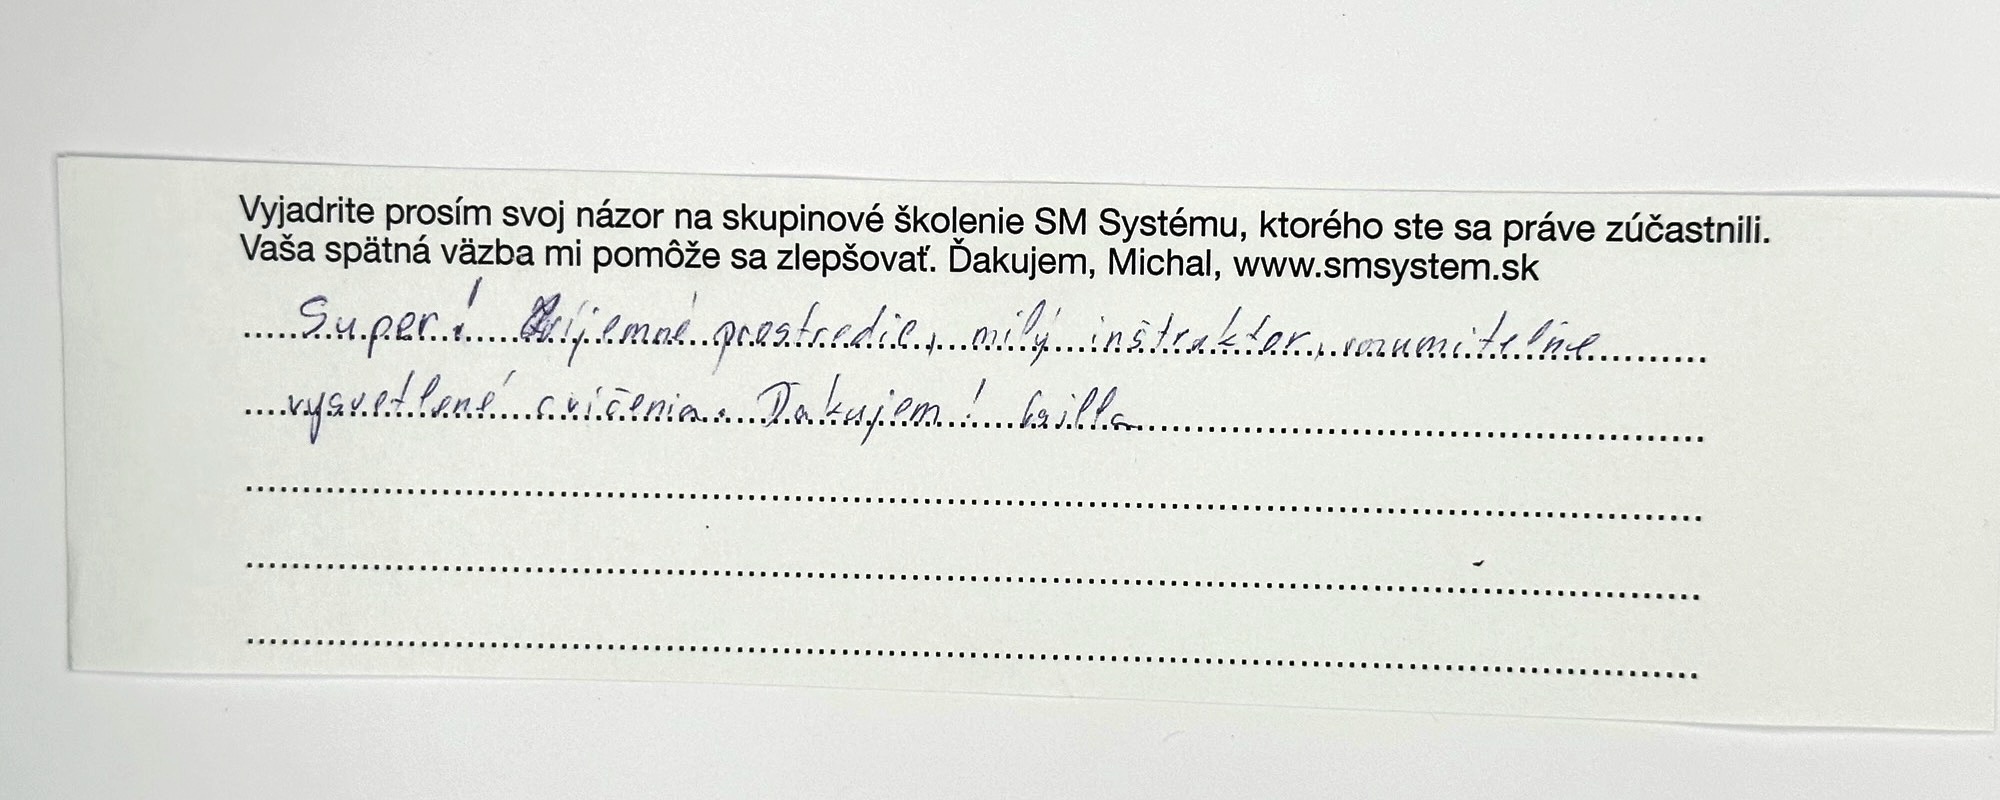 Vyjadrite prosím svoj názor na skupinové školenie SM Systému, ktorého ste sa práve zúčastnili.
Vaša spätná väzba mi pomôže sa zlepšovať. Ďakujem, Michal, www.smsystem.sk
Super! Príjemné prostredie, milý inštruktor, rozumiteľne
vysvetlené cvičenia. Ďakujem!